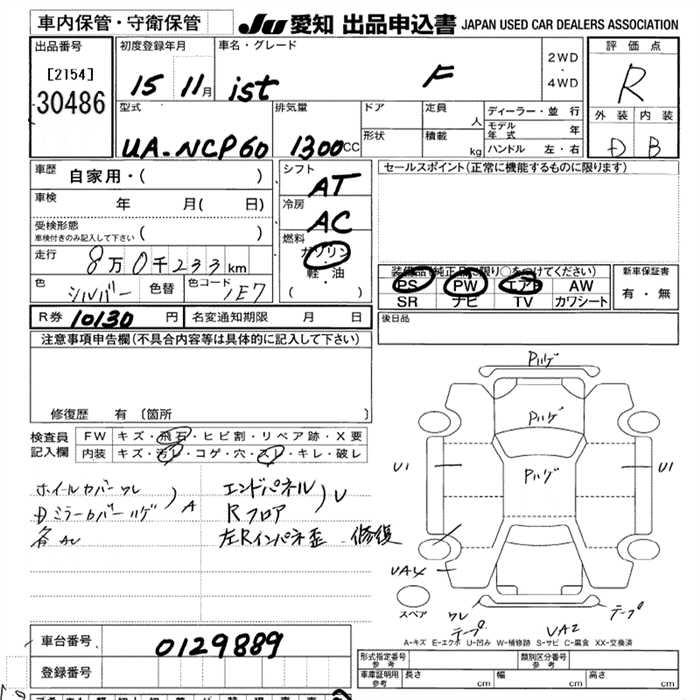 車内保管・守衛保管
JU 愛知 出品申込書 JAPAN USED CAR DEALERS ASSOCIATION
出品番号
[2154]
30486
初度登録年月
15 11月
車名・グレード
ist F
2WD
・
4WD
評価点
R
外装 内装
D B
型式
UA-NCP60
排気量
1300CC
ドア
定員
人
形状
積載
kg
ディーラー・並行
モデル年式 年
ハンドル 左・右
車歴
自家用・( )
車検
年 月( 日)
受検形態
車検付きのみ記入して下さい ( )
走行
8万0千233km
色
シルバー
色替
色コード
1E7
シフト
AT
冷房
AC
燃料
ガソリン
・
軽・油
( )
セールスポイント(正常に機能するものに限ります)
装備品(純正品に限り○をつけてください)
PS PW エアB AW
SR ナビ TV カワシート
新車保証書
有・無
R券 10130 円
名変通知期限 月 日
後日品
注意事項申告欄(不具合内容等は具体的に記入して下さい)
修復歴 有 〔箇所 〕
検査員
記入欄
FW キズ・飛石・ヒビ割・リペア跡・X要
内装 キズ・汚レ・コゲ・穴・スレ・キレ・破レ
ホイールカバーワレ
Dミラーカバーハゲ
A
各AU
エンドパネル
Rフロア
U
左Rインパネ歪 修復
Pハゲ
Pハゲ
Pハゲ
U1
U1
UA4
スペア
ワレ
テープ
UA2
テープ
A-キズ E-エクボ U-凹み W-補修跡 S-サビ C-腐食 XX-交換済
車台番号
0129889
登録番号
形式指定番号
参考
類別区分番号
参考
車庫証明用
参考
長さ cm 幅 cm 高さ cm